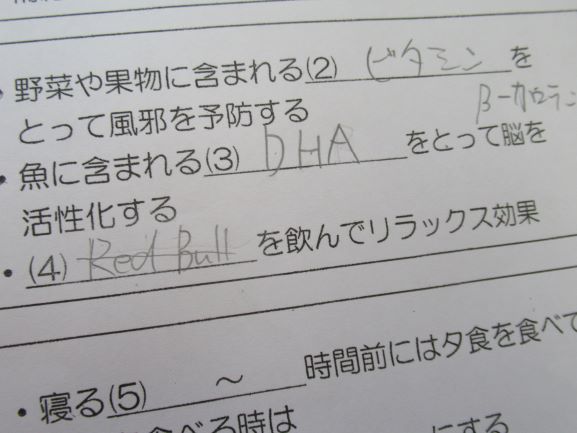 ・野菜や果物に含まれる(2) ビタミン を
β-カロテン
とって風邪を予防する
・魚に含まれる(3) DHA をとって脳を
活性化する
・(4) Red Bull を飲んでリラックス効果
・寝る(5) ～ 時間前には夕食を食べて
べる時は にする